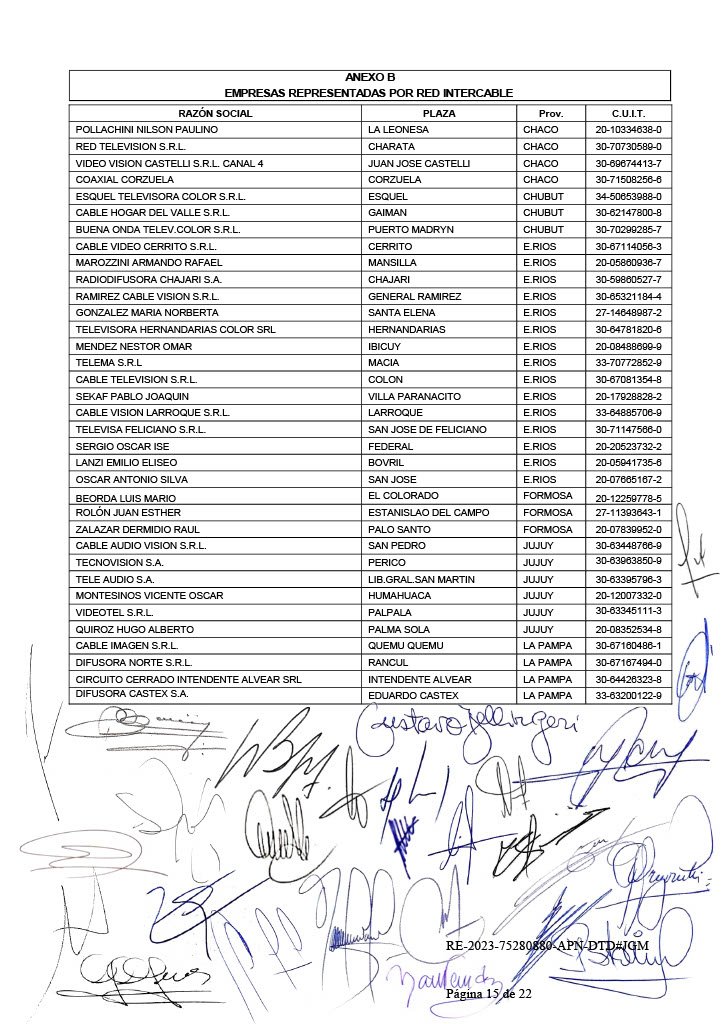 ANEXO B
EMPRESAS REPRESENTADAS POR RED INTERCABLE
RAZÓN SOCIAL PLAZA Prov. C.U.I.T.
POLLACHINI NILSON PAULINO LA LEONESA CHACO 20-10334638-0
RED TELEVISION S.R.L. CHARATA CHACO 30-70730589-0
VIDEO VISION CASTELLI S.R.L. CANAL 4 JUAN JOSE CASTELLI CHACO 30-69674413-7
COAXIAL CORZUELA CORZUELA CHACO 30-71508256-6
ESQUEL TELEVISORA COLOR S.R.L. ESQUEL CHUBUT 34-50653988-0
CABLE HOGAR DEL VALLE S.R.L. GAIMAN CHUBUT 30-62147800-8
BUENA ONDA TELEV.COLOR S.R.L. PUERTO MADRYN CHUBUT 30-70299285-7
CABLE VIDEO CERRITO S.R.L. CERRITO E.RIOS 30-67114056-3
MAROZZINI ARMANDO RAFAEL MANSILLA E.RIOS 20-05860936-7
RADIODIFUSORA CHAJARI S.A. CHAJARI E.RIOS 30-59860527-7
RAMIREZ CABLE VISION S.R.L. GENERAL RAMIREZ E.RIOS 30-65321184-4
GONZALEZ MARIA NORBERTA SANTA ELENA E.RIOS 27-14648987-2
TELEVISORA HERNANDARIAS COLOR SRL HERNANDARIAS E.RIOS 30-64781820-6
MENDEZ NESTOR OMAR IBICUY E.RIOS 20-08488699-9
TELEMA S.R.L MACIA E.RIOS 33-70772852-9
CABLE TELEVISION S.R.L. COLON E.RIOS 30-67081354-8
SEKAF PABLO JOAQUIN VILLA PARANACITO E.RIOS 20-17928828-2
CABLE VISION LARROQUE S.R.L. LARROQUE E.RIOS 33-64885706-9
TELEVISA FELICIANO S.R.L. SAN JOSE DE FELICIANO E.RIOS 30-71147566-0
SERGIO OSCAR ISE FEDERAL E.RIOS 20-20523732-2
LANZI EMILIO ELISEO BOVRIL E.RIOS 20-05941735-6
OSCAR ANTONIO SILVA SAN JOSE E.RIOS 20-07665167-2
BEORDA LUIS MARIO EL COLORADO FORMOSA 20-12259778-5
ROLÓN JUAN ESTHER ESTANISLAO DEL CAMPO FORMOSA 27-11393643-1
ZALAZAR DERMIDIO RAUL PALO SANTO FORMOSA 20-07839952-0
CABLE AUDIO VISION S.R.L. SAN PEDRO JUJUY 30-63448766-9
TECNOVISION S.A. PERICO JUJUY 30-63963850-9
TELE AUDIO S.A. LIB.GRAL.SAN MARTIN JUJUY 30-63395796-3
MONTESINOS VICENTE OSCAR HUMAHUACA JUJUY 20-12007332-0
VIDEOTEL S.R.L. PALPALA JUJUY 30-63345111-3
QUIROZ HUGO ALBERTO PALMA SOLA JUJUY 20-08352534-8
CABLE IMAGEN S.R.L. QUEMU QUEMU LA PAMPA 30-67160486-1
DIFUSORA NORTE S.R.L. RANCUL LA PAMPA 30-67167494-0
CIRCUITO CERRADO INTENDENTE ALVEAR SRL INTENDENTE ALVEAR LA PAMPA 30-64426323-8
DIFUSORA CASTEX S.A. EDUARDO CASTEX LA PAMPA 33-63200122-9
Gustavo
RE-2023-75280880-APN-DTD#JGM
Página 15 de 22